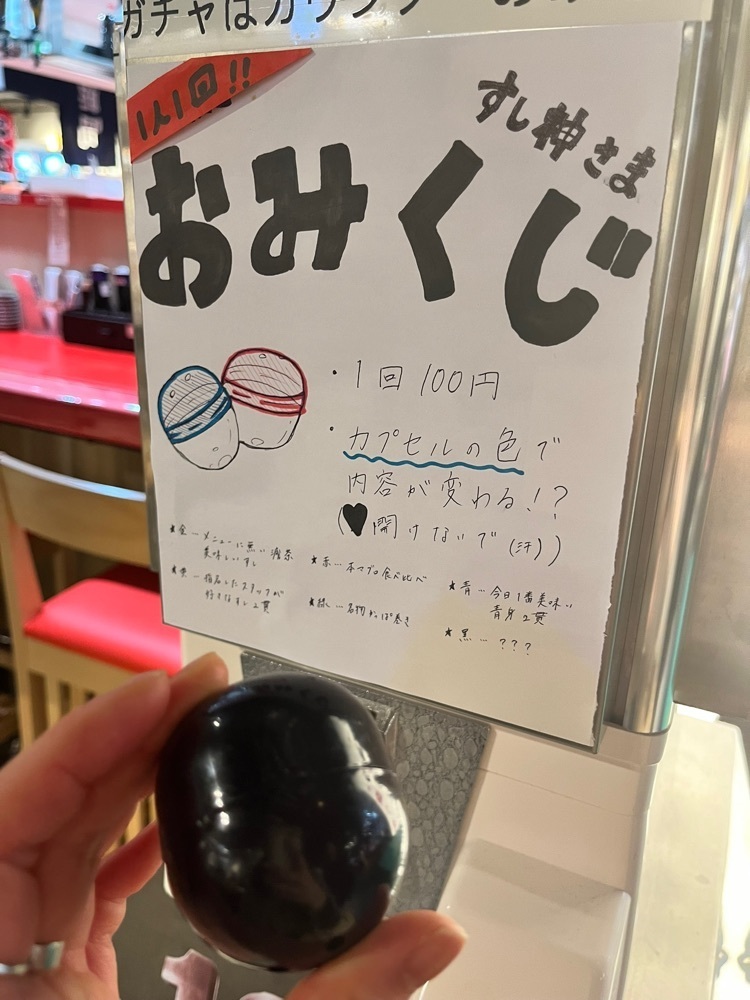 ガチャはカウンター
1人1回!!
すし神さま
おみくじ
・1回100円
・カプセルの色で
内容が変わる!?
(♥開けないで(汗))
★金…メニューに無い
美味しいすし
★黄…指名したスタッフが
好きなすし2貫
★赤…本マグロ食べ比べ
★緑…名物かっぱ巻き
★青…今日1番美味い
青身2貫
★黒…???